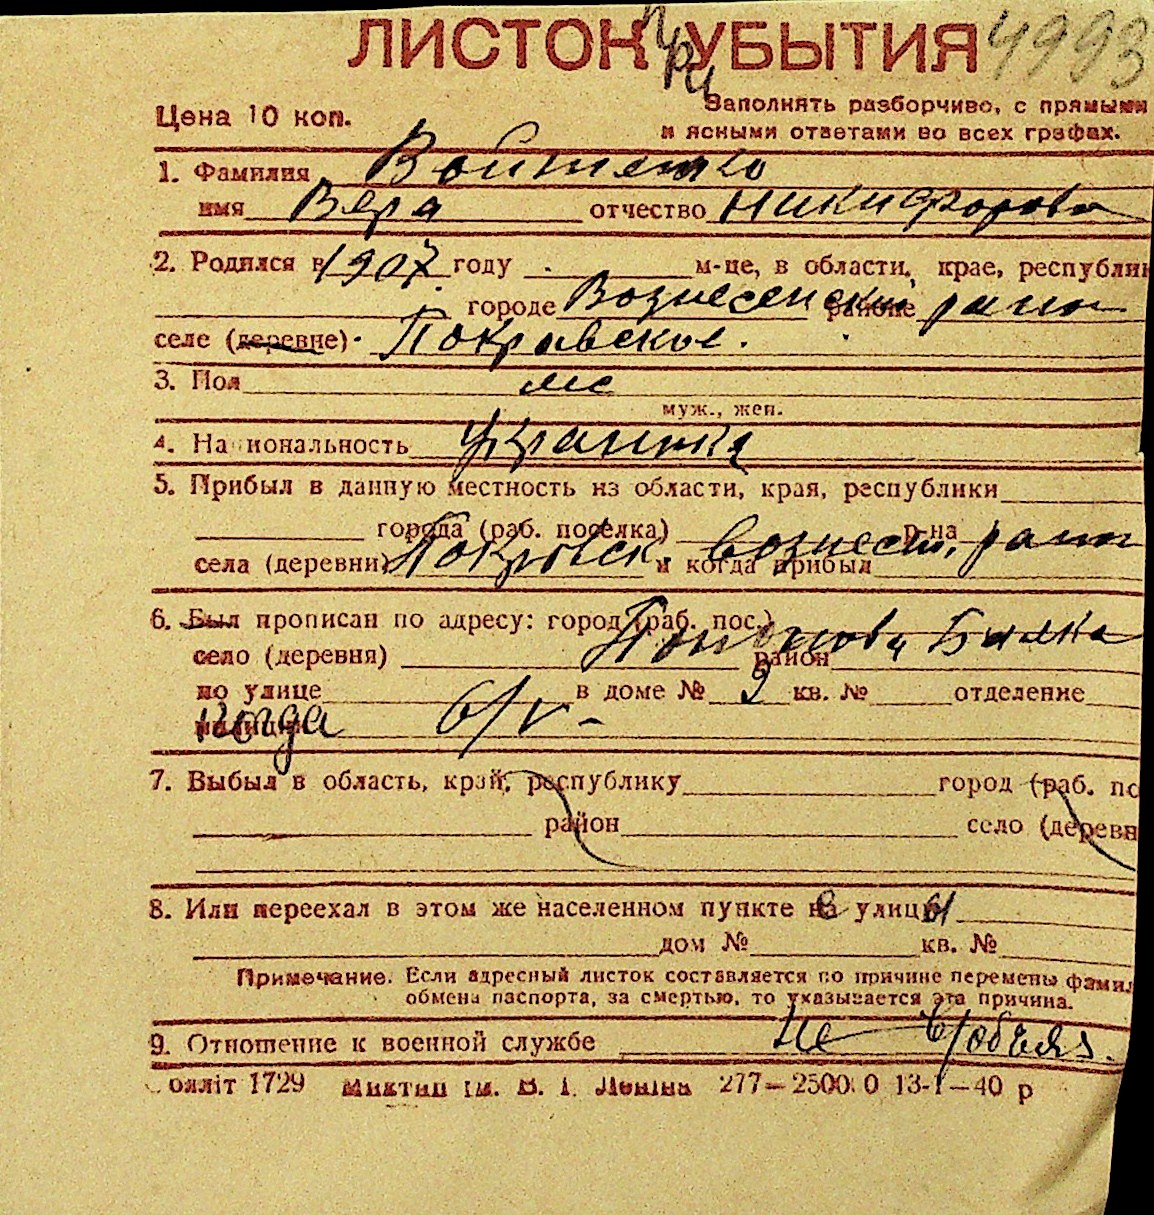 ЛИСТОК при УБЫТИЯ 4993
Цена 10 коп.
Заполнять разборчиво, с прямыми
и ясными ответами во всех графах.
1. Фамилия Войтенко
имя Вера отчество Никифоровн
2. Родился в 1907 году м-це, в области, крае, республик
городе Вознесенский районе район
селе (деревне) Покровское.
3. Пол
муж., жен.
4. Национальность украинка
5. Прибыл в данную местность из области, края, республики
города (раб. поселка) р-на
села (деревни) Покровск. Вознесен. район и когда прибыл
6. Был прописан по адресу: город (раб. пос.)
село (деревня) Балка район
по улице в доме № 2 кв. № отделение
когда
7. Выбыл в область, край, республику город (раб. пос
район село (деревн
8. Или переехал в этом же населенном пункте на улицу
дом № кв. №
Примечание. Если адресный листок составляется по причине перемены фамил
обмена паспорта, за смертью, то указывается эта причина.
9. Отношение к военной службе не в/обяз.
Обліт 1729 ім. В. І. Леніна 277—25000 13-І—40 р